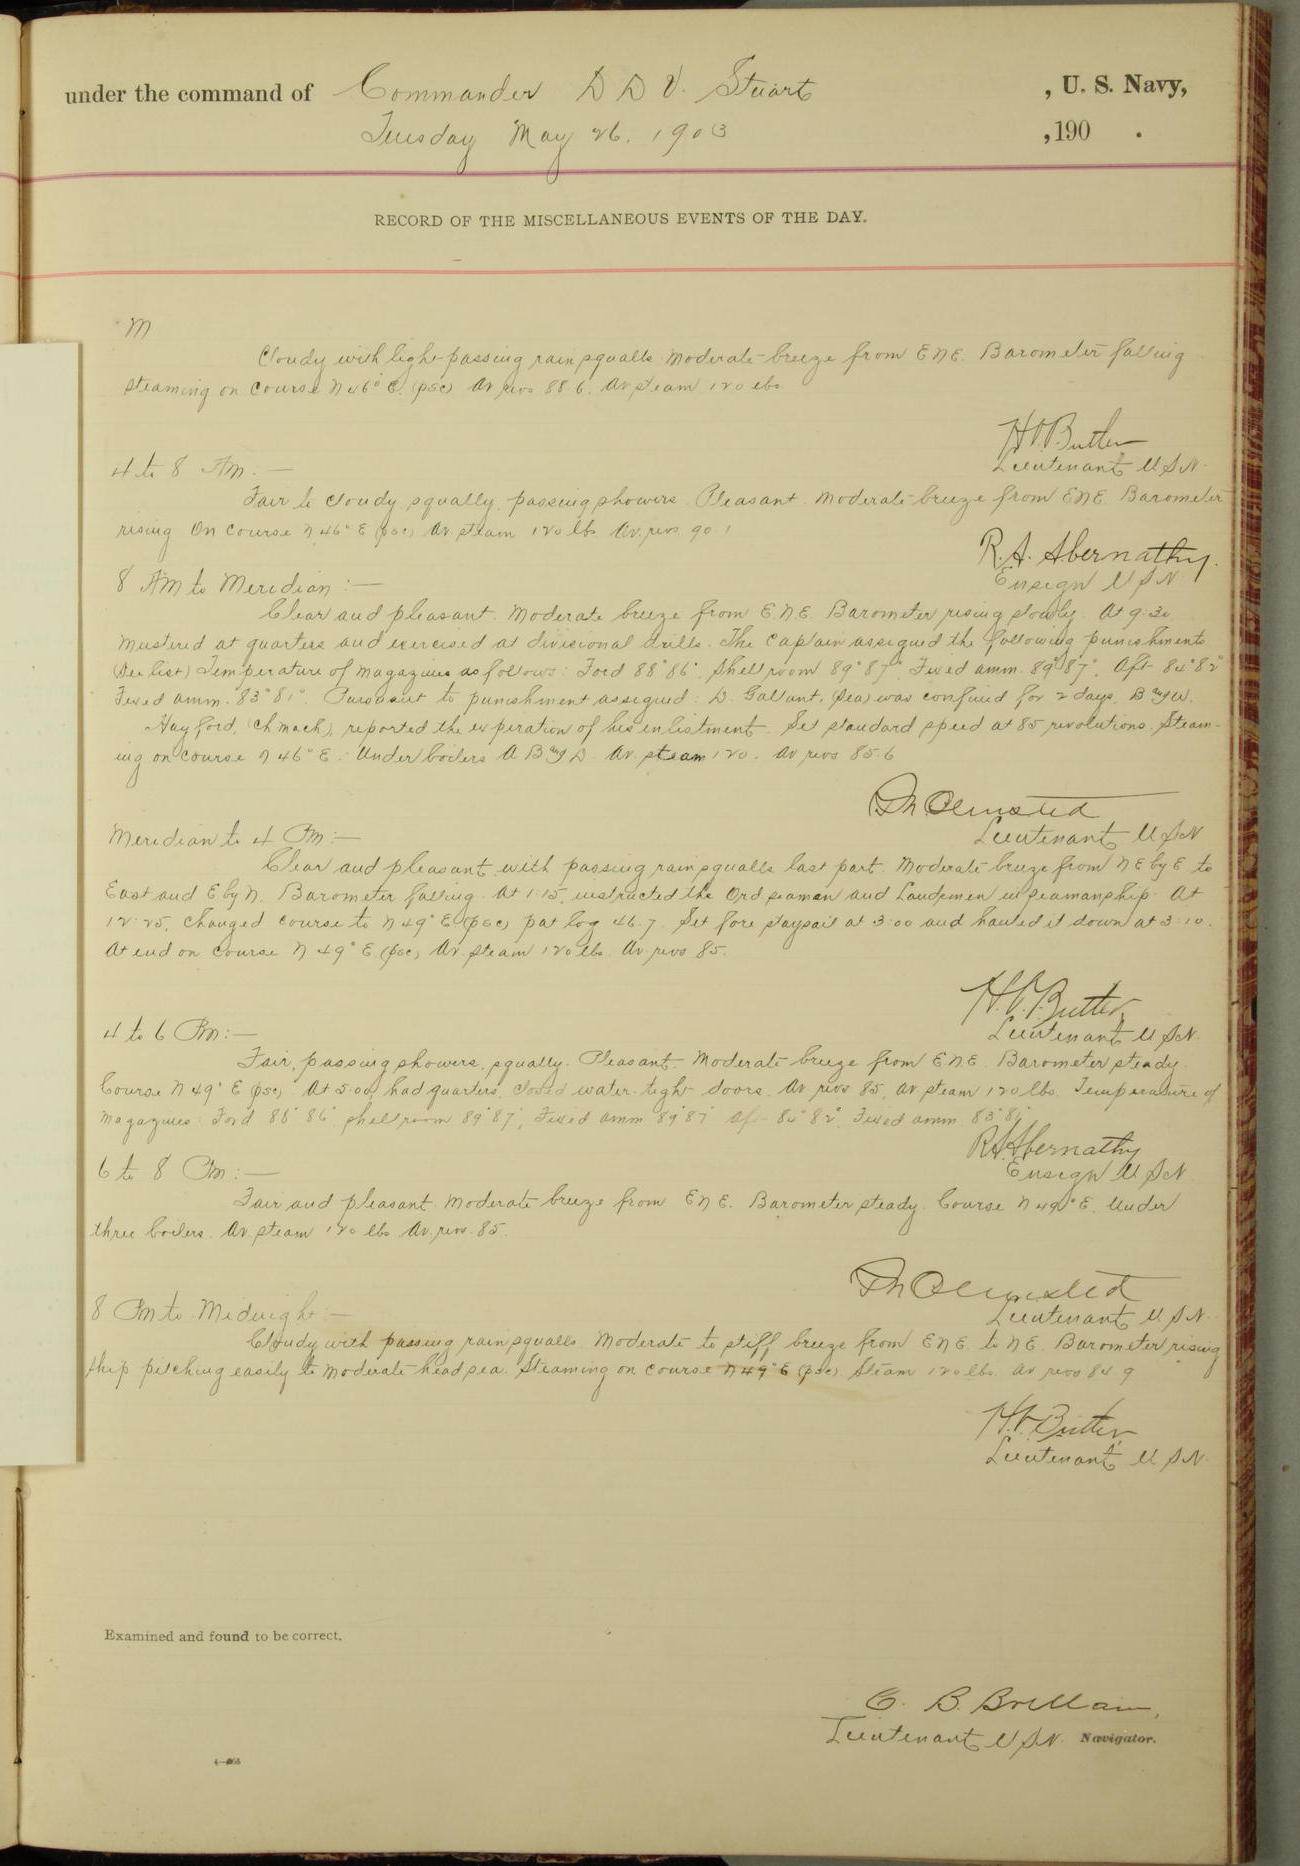 under the command of Commander D D V. Stuart , U. S. Navy,
Tuesday May 26. 1903 ,190 .
RECORD OF THE MISCELLANEOUS EVENTS OF THE DAY.
M
Cloudy with light passing rain squalls Moderate breeze from E N E. Barometer falling
steaming on course N 46° E. (psc) Av revs 88 6. Av steam 120 lbs
H. V. Butler
Lieutenant U S N.
4 to 8 AM. —
Fair to cloudy, squally, passing showers. Pleasant. Moderate breeze from E N E. Barometer
rising On course N 46° E (psc) Av steam 120 lbs Av. revs. 90 1
R. A. Abernathy.
Ensign U S N
8 AM to Meridian : —
Clear and pleasant. Moderate breeze from E. N. E. Barometer rising slowly. At 9:30
mustered at quarters and exercised at divisional drills. The Captain assigned the following punishments
(See list) Temperature of magazines as follows: Ford 88° 86°, Shell room 89° 87°, Fixed amm. 89° 87°, Aft 84° 82°
Fixed amm. 83° 81°. Pursuant to punishment assigned: D. Gallant, (Sea) was confined for 2 days, B &W.
Hayford, (Ch mach), reported the expiration of his enlistment. Set standard speed at 85 revolutions. Steam-
ing on course N 46° E. Under boilers A B & D. Av. steam 120. Av revs 85.6
Olmsted
Lieutenant U S N
Meridian to 4 PM : —
Clear and pleasant with passing rain squalls last part. Moderate breeze from N E by E to
East and E by N. Barometer falling. At 1:15, instructed the Ord seamen and Landsmen in seamanship. At
12:25, changed course to N 49° E (psc) pat log 46.7. Set fore staysail at 3:00 and hauled it down at 3:10.
At end on course N 49° E (psc), Av. steam 120 lbs. Av revs 85.
H. V. Butler
Lieutenant U S N.
4 to 6 PM : —
Fair, passing showers, squally. Pleasant. Moderate breeze from E N E Barometer steady
Course N 49° E (psc) At 5:00, had quarters, closed water-tight doors. Av revs 85, av steam 120 lbs. Temperature of
magazines: Ford 88° 86° shell room 89° 87°, Fixed amm 89° 87° Aft 84° 82°, Fixed amm 83° 81°
R A Abernathy
Ensign U S N.
6 to 8 PM : —
Fair and pleasant Moderate breeze from E N E. Barometer steady. Course N 49° E. Under
three boilers. Av. steam 120 lbs Av. revs. 85.
Olmsted
Lieutenant U S N.
8 PM to Midnight : —
Cloudy with passing rain squalls Moderate to stiff breeze from E N E. to N E. Barometer rising
Ship pitching easily to moderate head sea. Steaming on course N 49° E (psc) Steam 120 lbs. Av revs 84 9
H. V. Butler
Lieutenant U S N.
Examined and found to be correct.
C. B. Brittain,
Lieutenant U S N. Navigator.